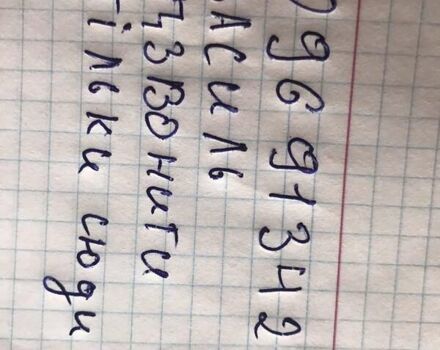 09691342
АСИЛЬ
ДЗВОНИТИ
тільки сюди